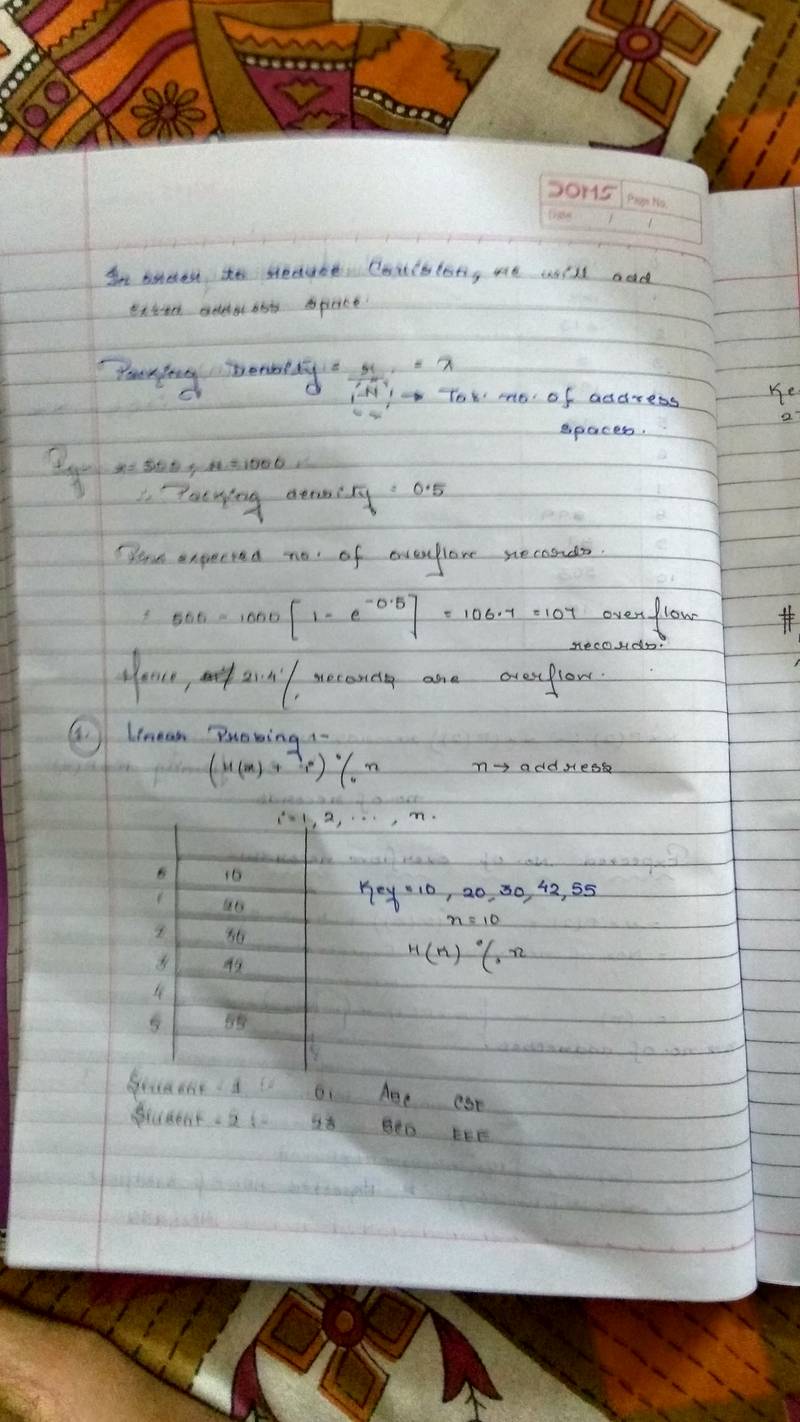 DOMS Page No.
Date / /
In order to reduce Collision, we will add
extra address space.
Packing Density = n/N = λ
N → Tot. no. of address
spaces.
Eg- n=500, N=1000
∴ Packing density = 0.5
expected no. of overflow records.
= 500 - 1000 [1 - e^-0.5] = 106.7 = 107 overflow
records.
Hence, 21.4% records are overflow.
1. Linear Probing :-
(H(K) + i) % n n → address
i = 1, 2, ..., n.
0 10
Key = 10, 20, 30, 42, 55
1 20
n=10
2 30
H(K) % n
3 42
4
5 55
Student - 1 :- 01 ABC CSE
Student - 2 :- BCD EEE
#